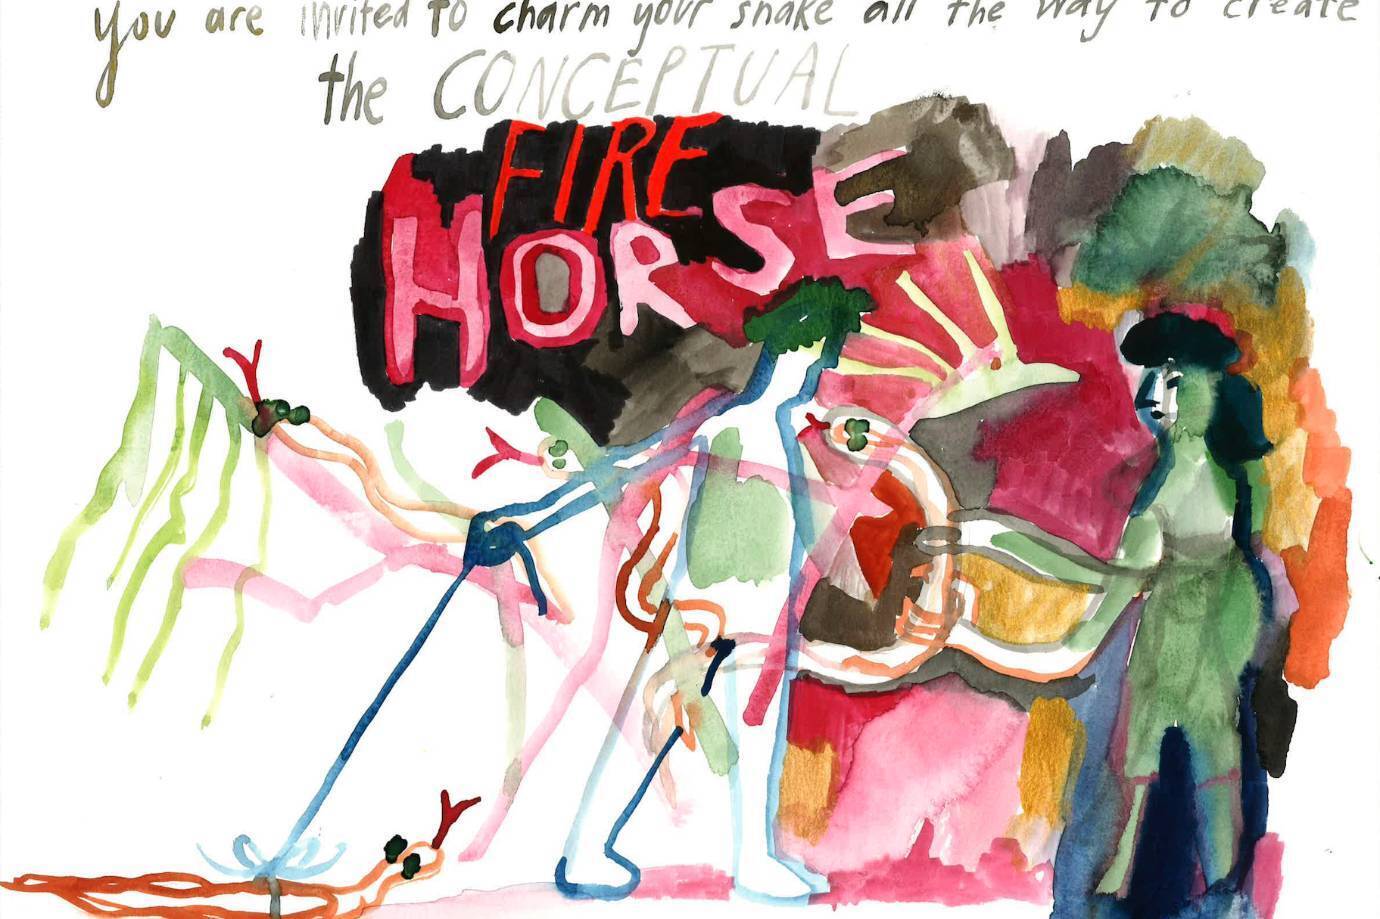 you are invited to charm your snake all the way to create
the CONCEPTUAL
FIRE
HORSE